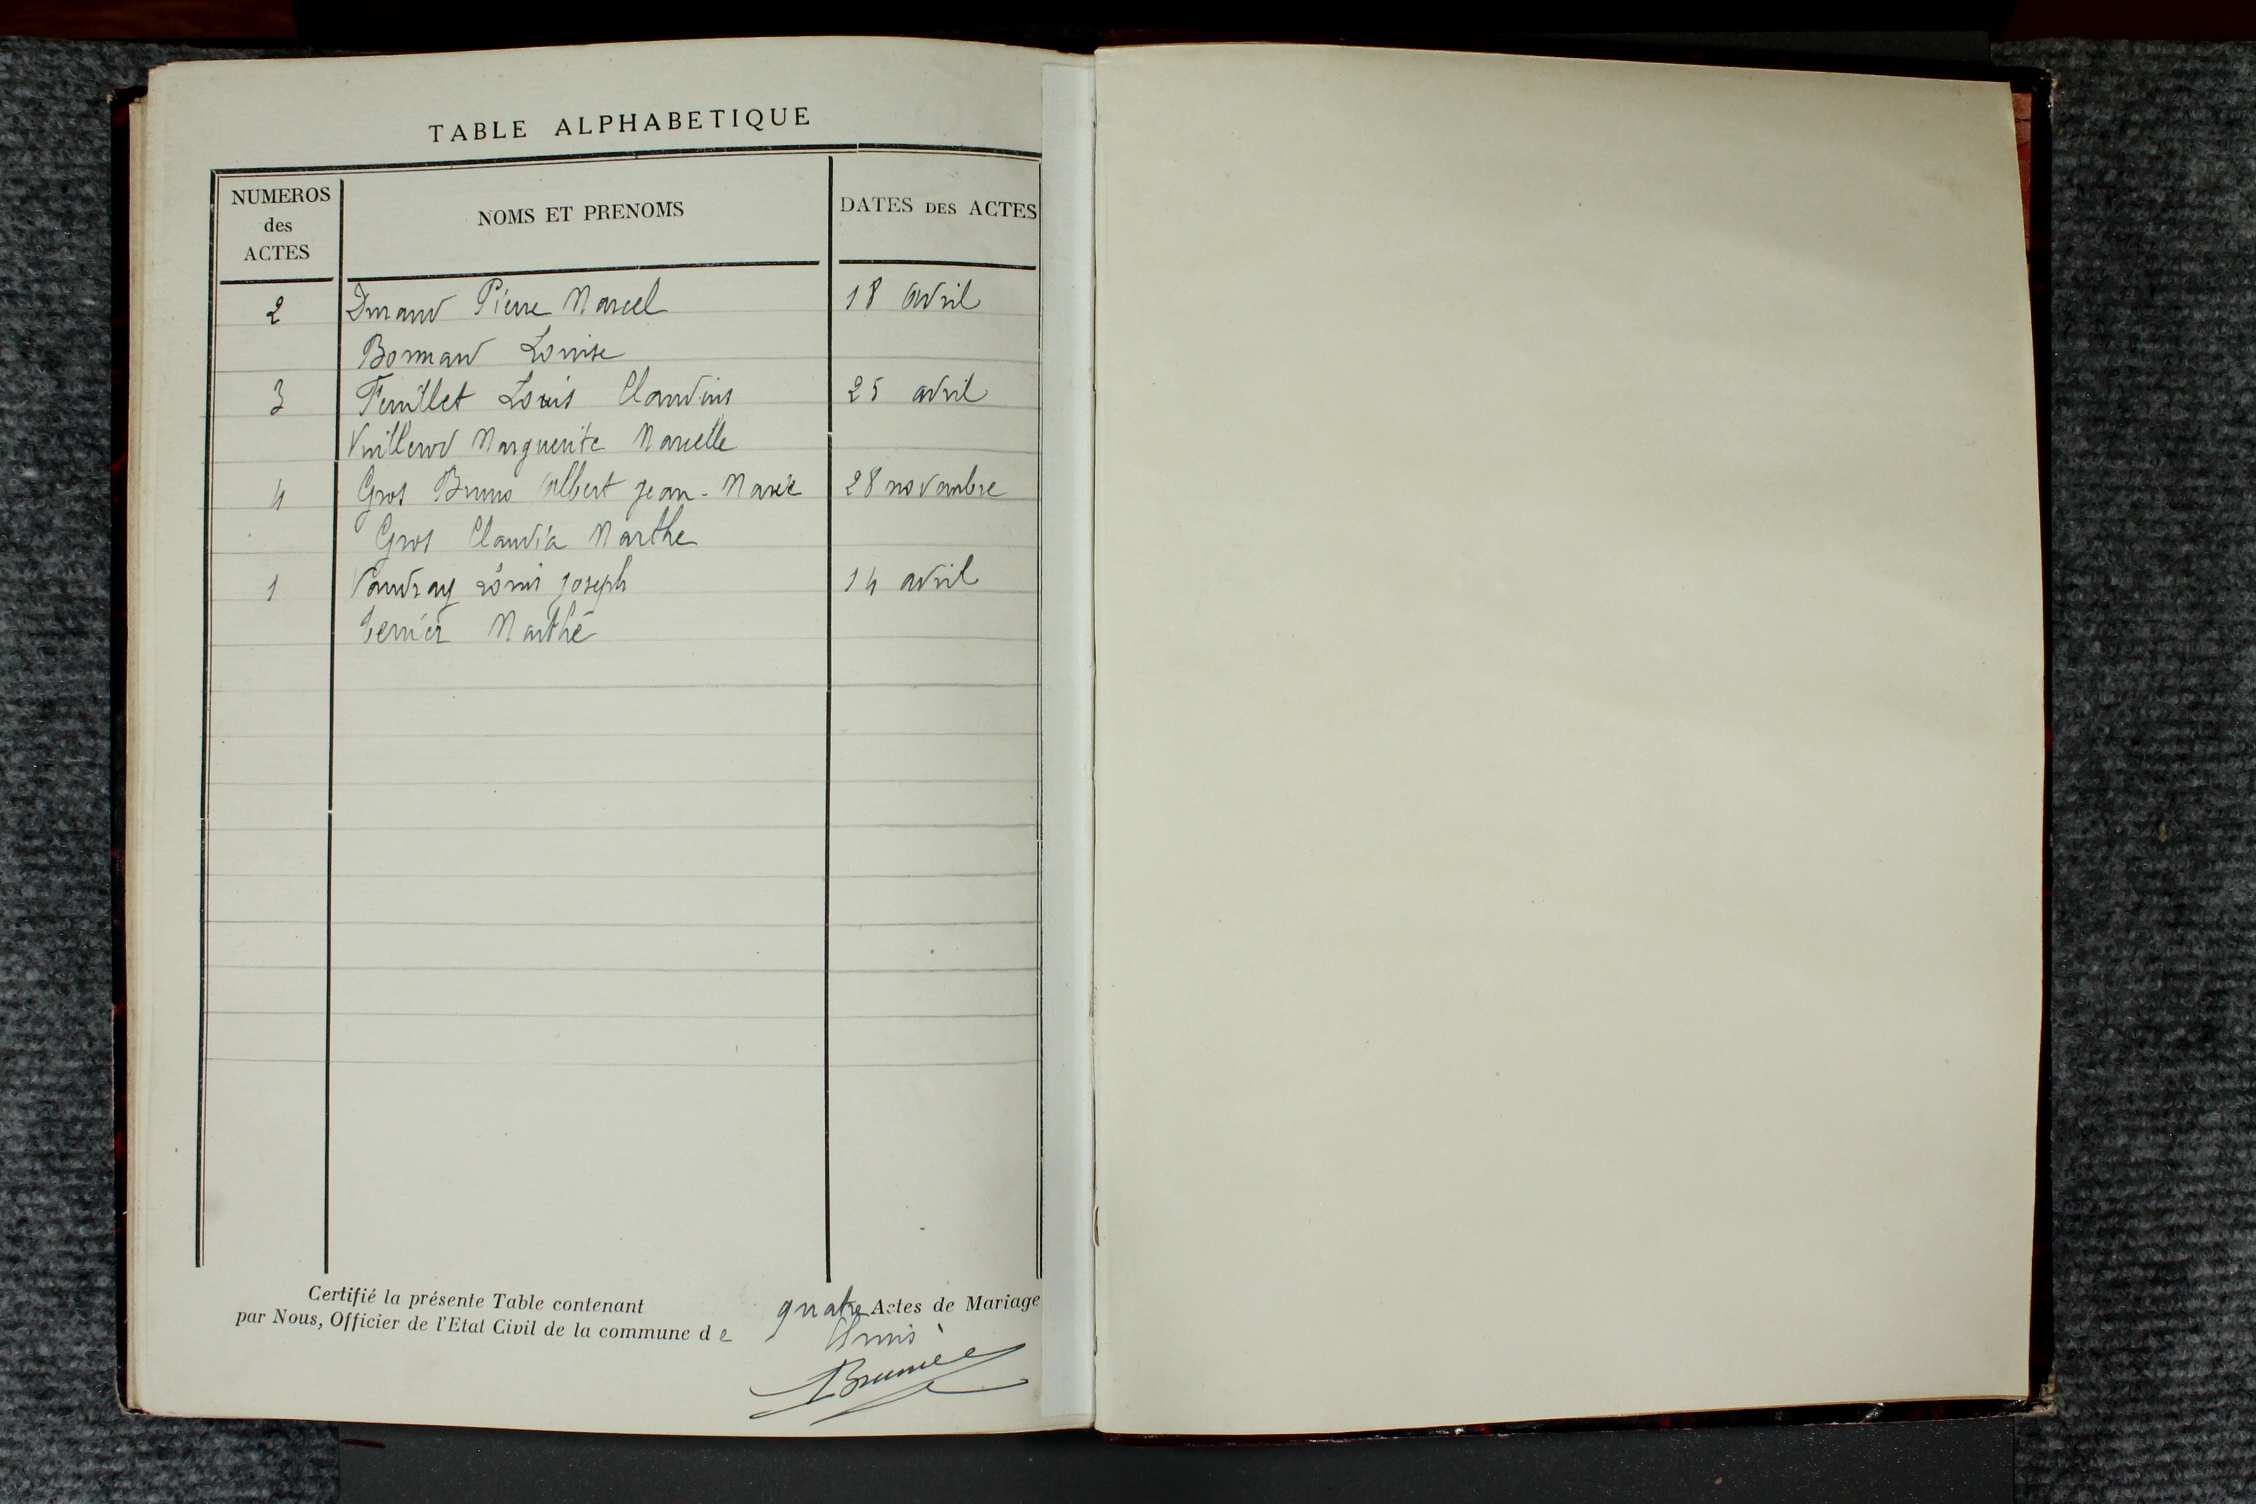 TABLE ALPHABETIQUE
NUMEROS des ACTES
NOMS ET PRENOMS
DATES DES ACTES
2 Durand Pierre Marcel 18 avril
Bonnand Louise
3 Feuillet Louis Claudius 25 avril
Vuillerod Marguerite Marcelle
4 Gros Bruno Albert Jean-Marie 28 novembre
Gros Claudia Marthe
1 Vaudray Louis Joseph 14 avril
Marthe
Certifié la présente Table contenant quatre Actes de Mariage
par Nous, Officier de l'Etat Civil de la commune de